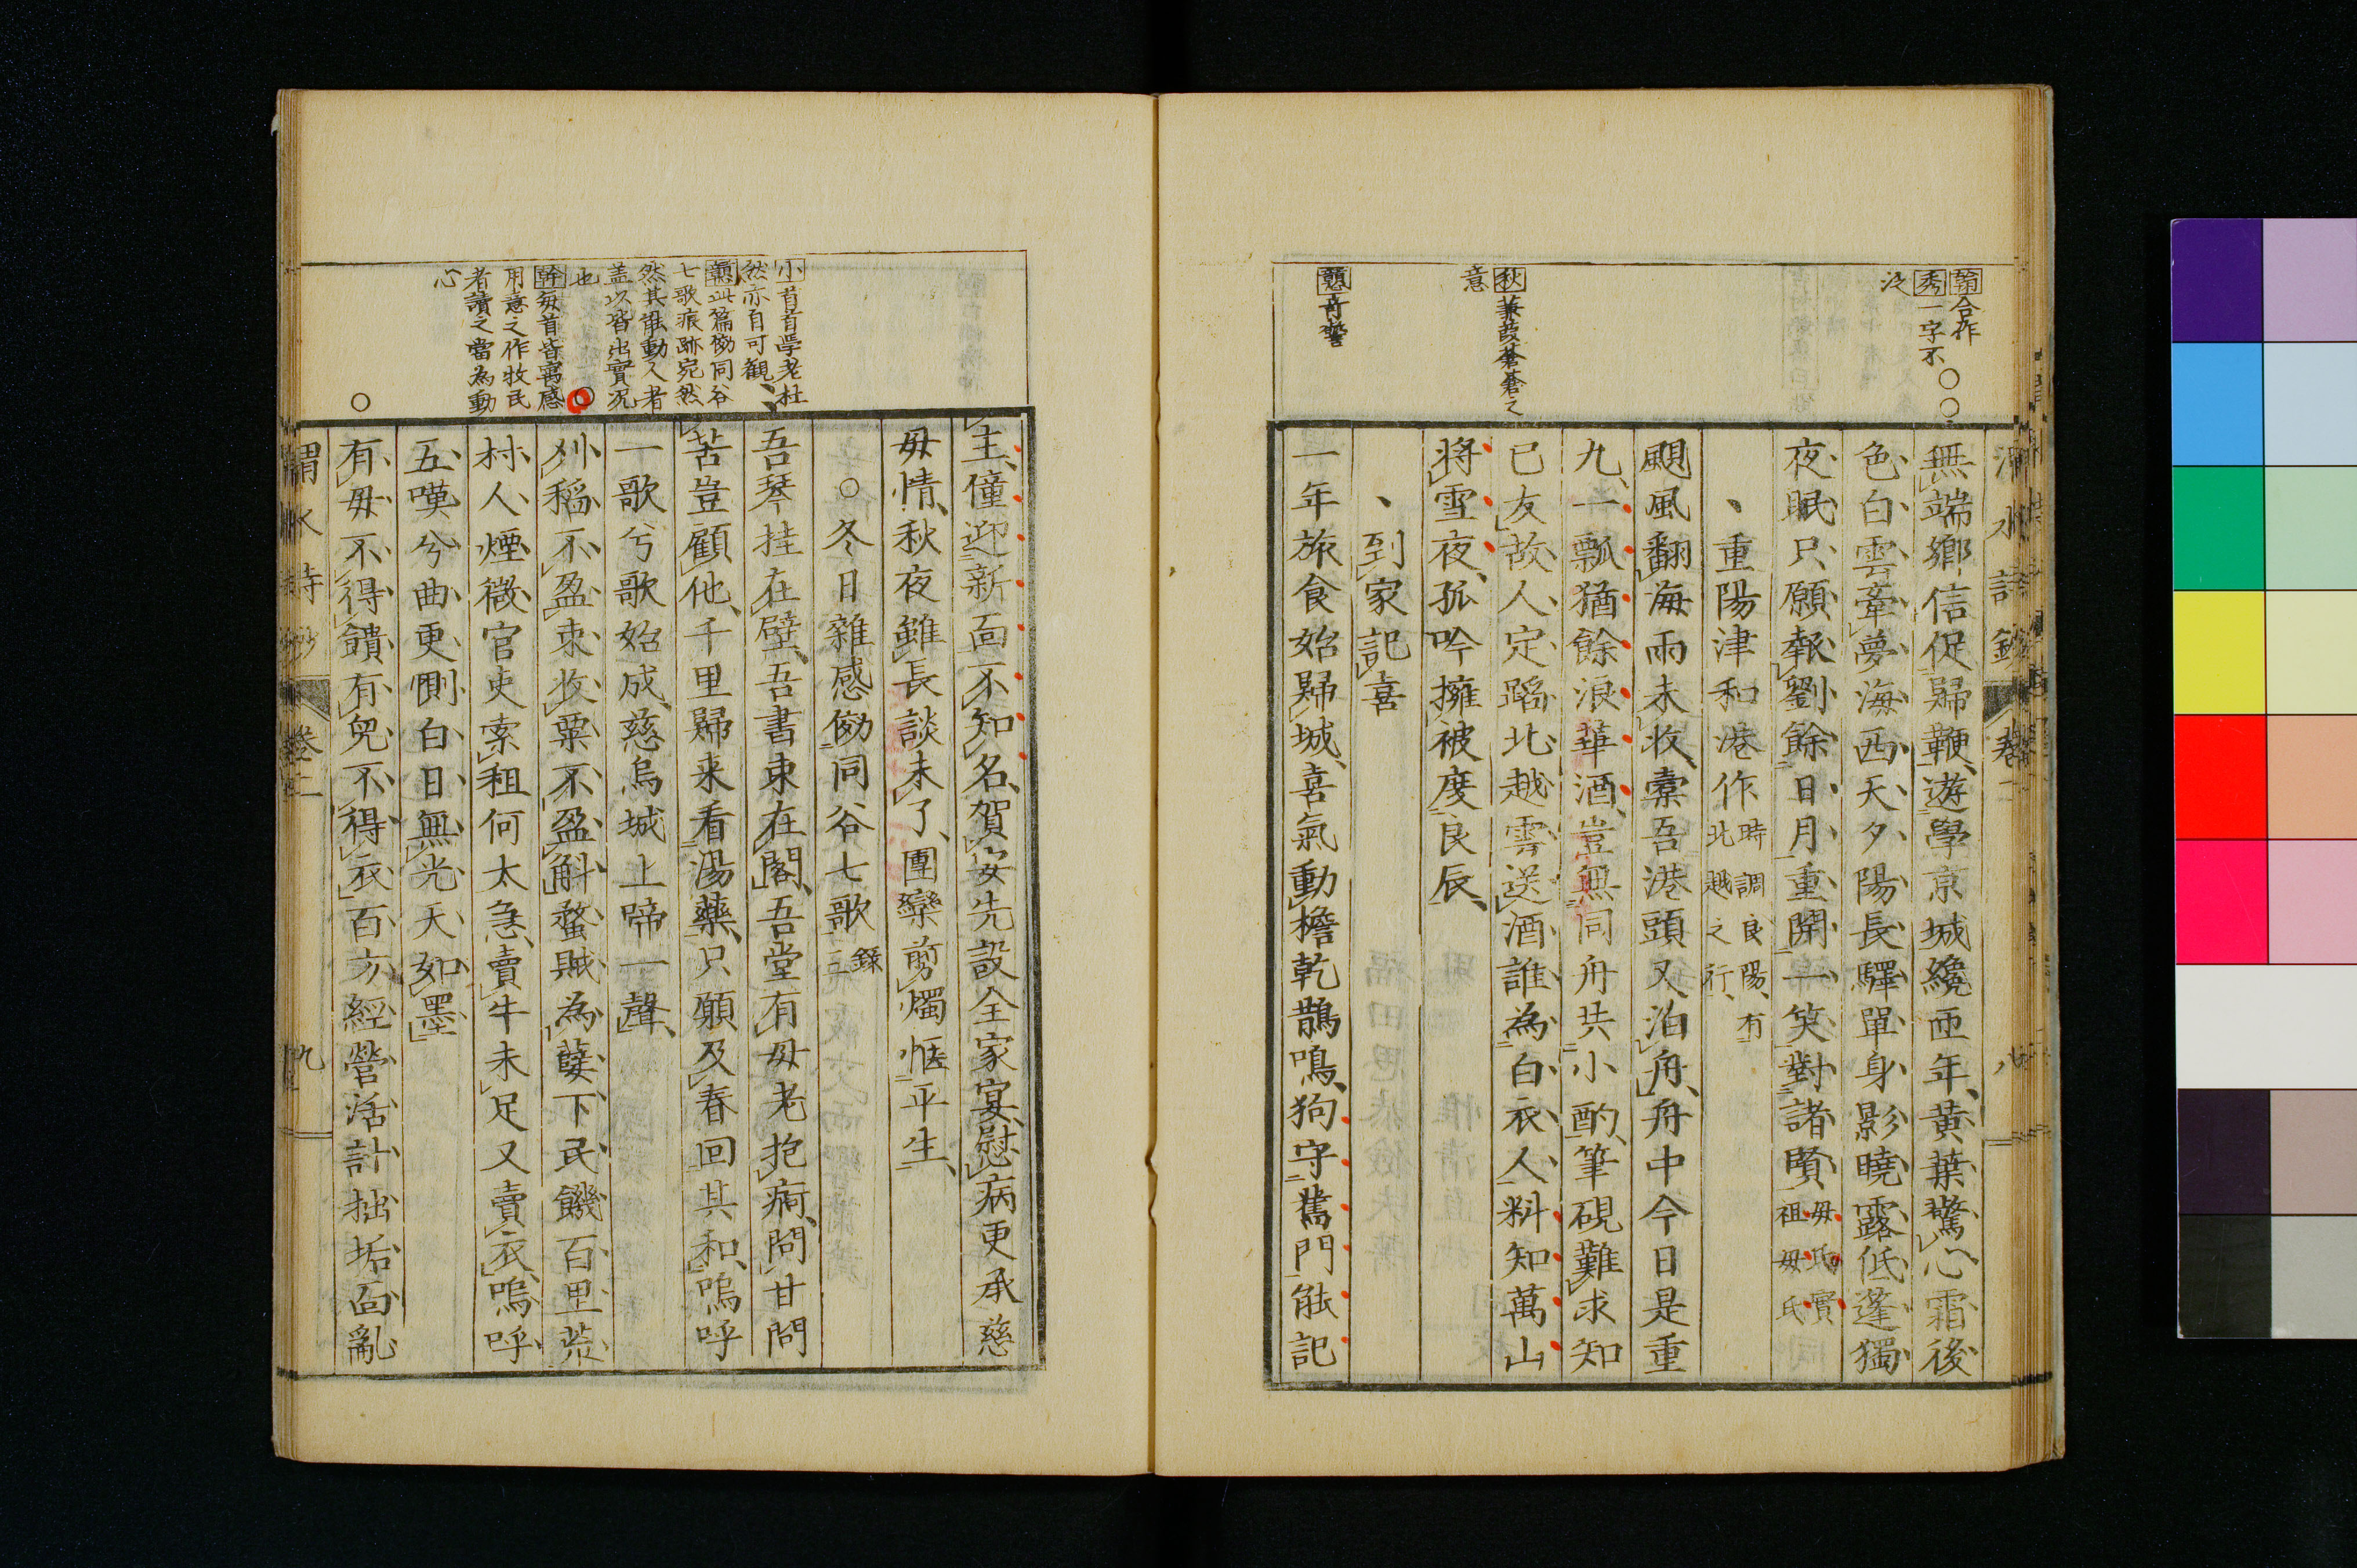 合作
秀一字不
没
秋蒹葭蒼蒼之
意
無端鄉信促歸鞭遊學京城纔匝年黃葉驚心霜後
色白雲牽夢海西天夕陽長驛單身影曉露低蓬獨
夜眠只願報劉餘日月重開一笑對諸賢母氏實
祖母氏
重陽津和港作時調良陽有
北越之行
颶風翻海雨未收槖吾港頭又泊舟舟中今日是重
九一瓢猶餘浪華酒豈無同舟共小酌筆硯難求知
已友故人定蹈北越雲送酒誰為白衣人料知萬山
將雪夜孤吟擁被度良辰
到家記喜
一年旅食始歸城喜氣動檐乾鵲鳴狗守舊門能記
小首首學老杜
然亦自可観
此篇傚同谷
七歌痕跡宛然
然其能動人者
盖以皆出實況
也
幹每首皆寓感
用意之作牧民
者讀之當為動
心
主僮迎新面不知名賀安先設全家宴慰病更承慈
母情秋夜雖長談未了團欒剪燭愜平生
○冬日雜感傚同谷七歌錄三
吾琴挂在壁吾書束在閣吾堂有母老抱痾問甘問
苦豈顧他千里歸来看湯藥只願及春回其和嗚呼
一歌兮歌始成慈烏城上啼一聲
刈稻不盈束收粟不盈斛蝥賊為孽下民饑百里荒
村人煙微官吏索租何太急賣牛未足又賣衣嗚呼
五嘆兮曲更惻白日無光天如墨
有母不得饋有兒不得衣百方經營活計拙垢面亂
卷二
九